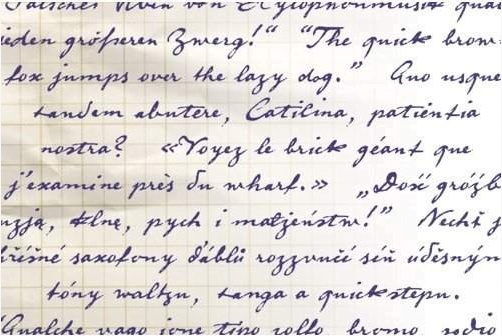 von Xylophonmusik
jeden größeren Zwerg!“ “The quick brown
fox jumps over the lazy dog.” Quo usque
tandem abutere, Catilina, patientia
nostra? «Voyez le brick géant que
j'examine près du wharf.» „Dość gróźb
fuzją, klnę, pych i małżeństw!” Nechť
saxofony ďáblů rozzvučí síň úděsným
tóny waltzu, tanga a quickstepu.
Qualche vago ione tipo zolfo, bromo, sodio